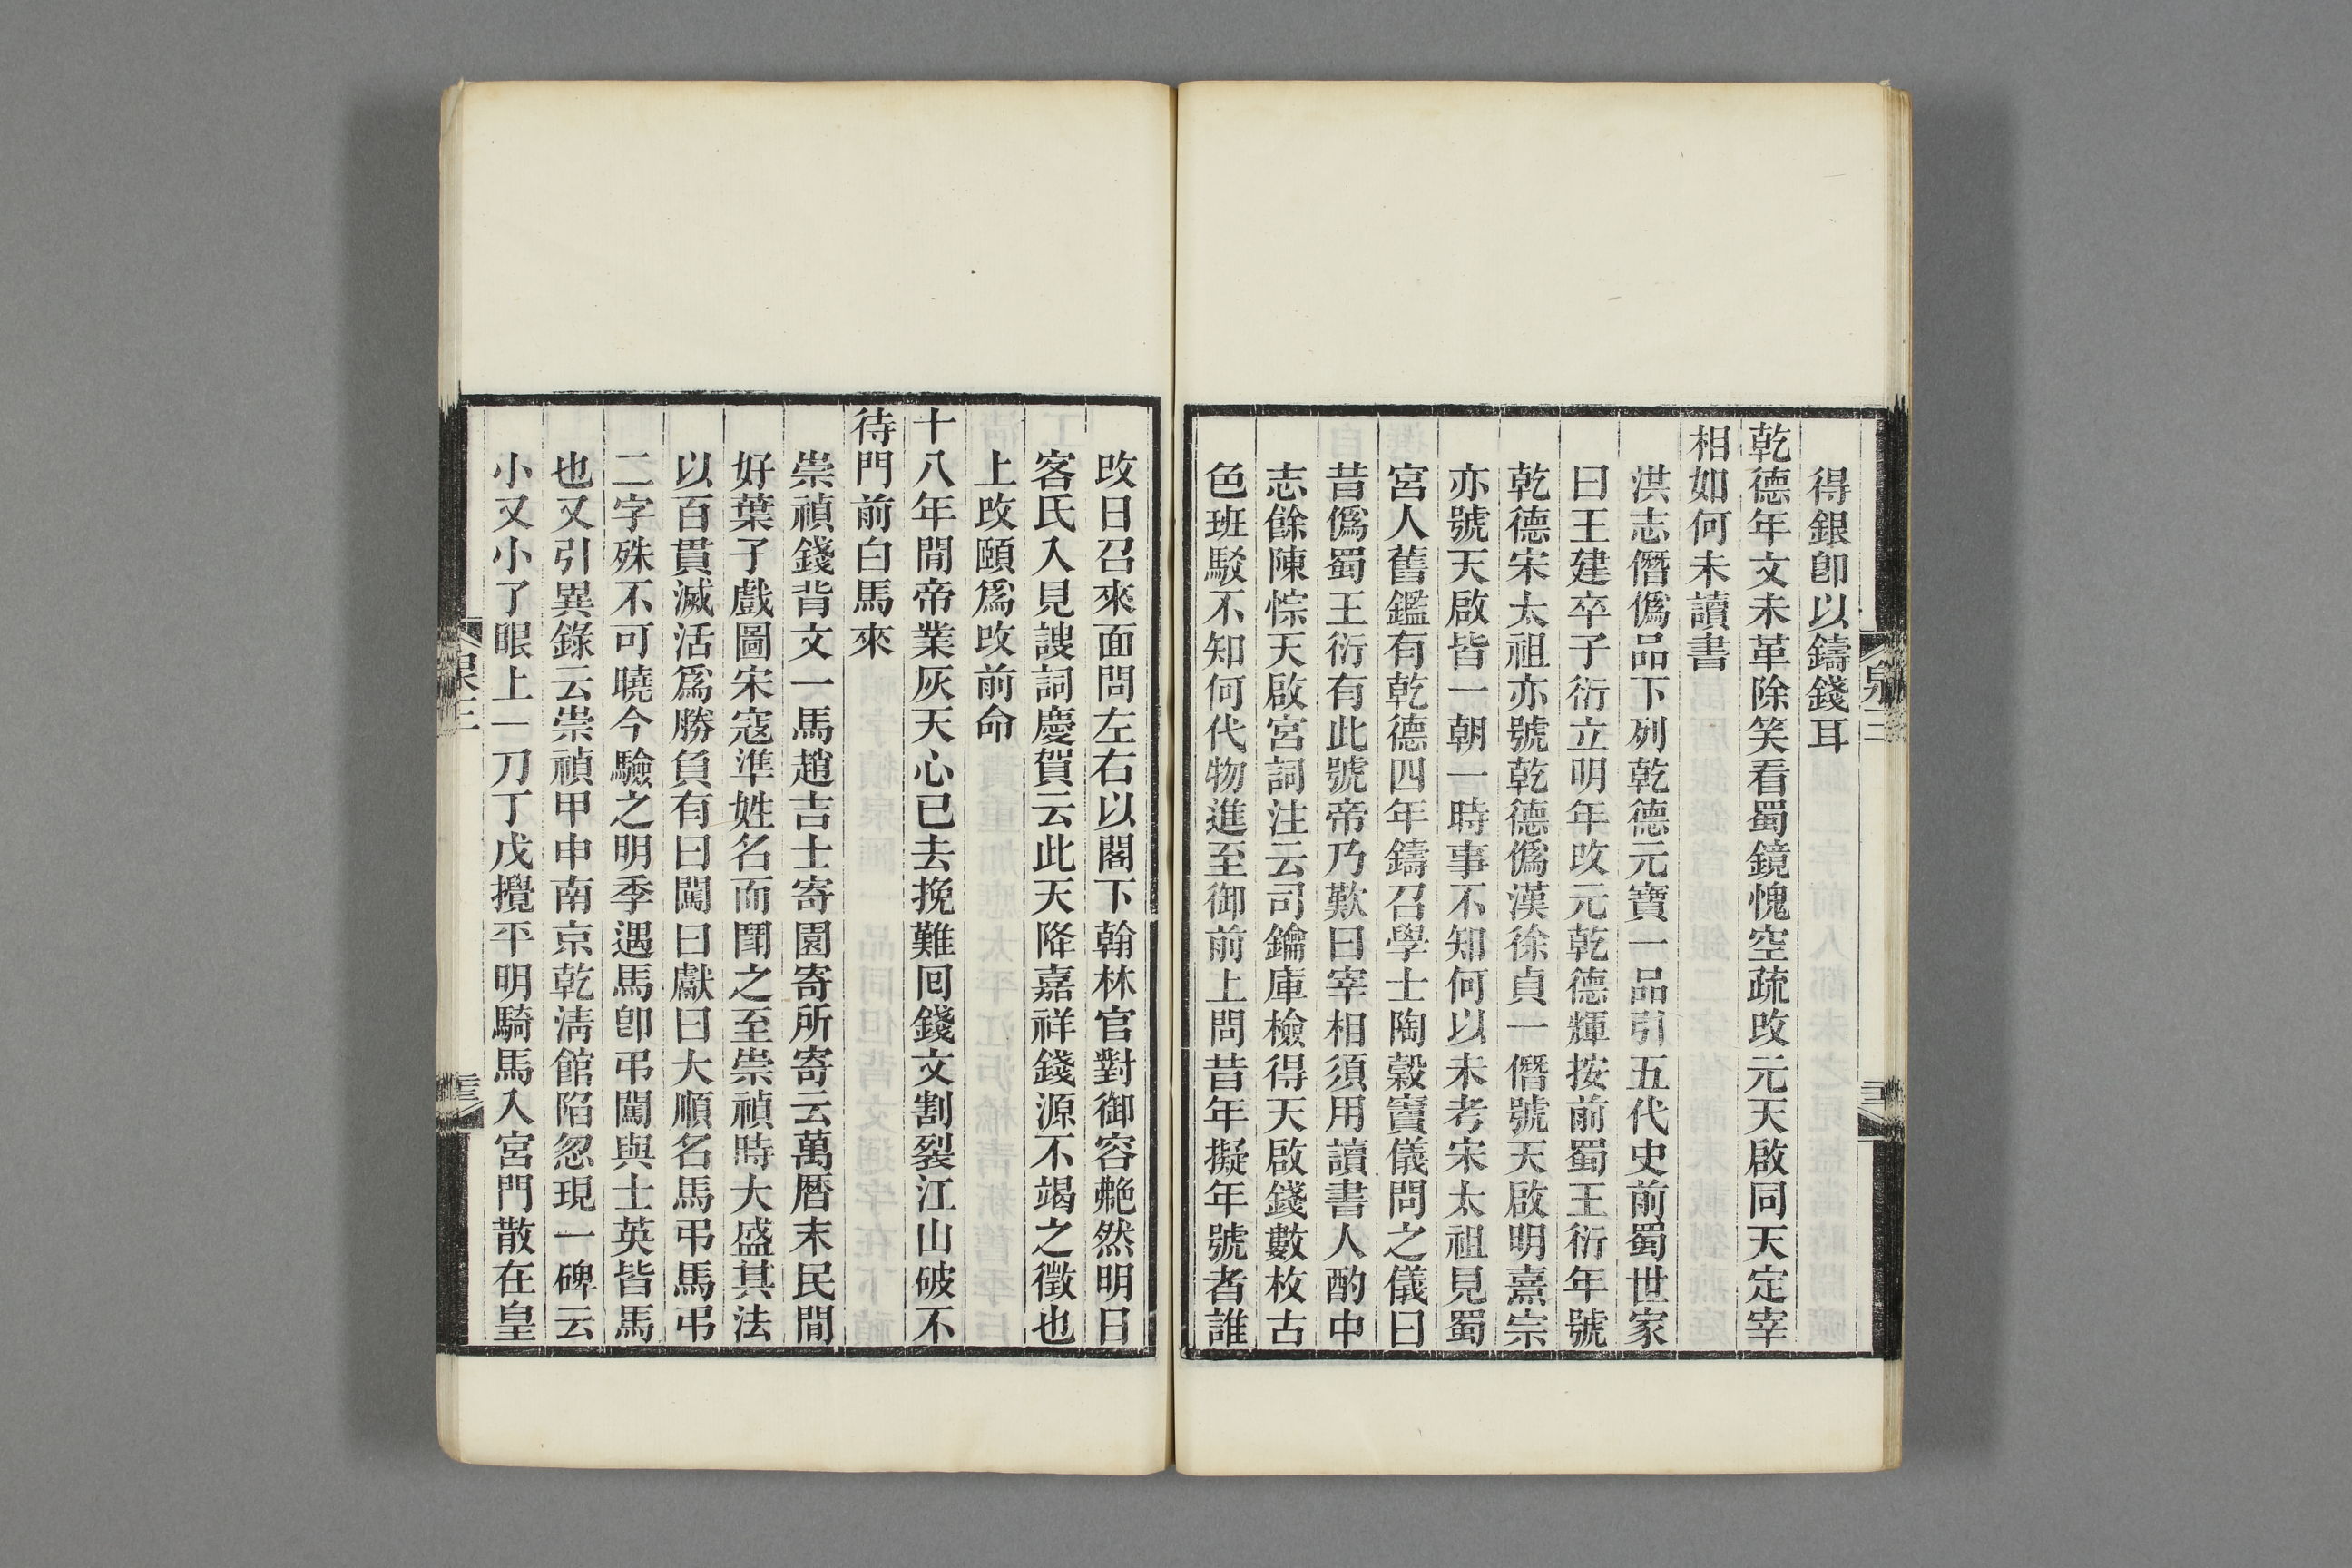 得銀卽以鑄錢耳
乾德年文未革除笑看蜀鏡愧空疏攺元天啟同天定宰
相如何未讀書
洪志僭僞品下列乾德元寶一品引五代史前蜀世家
曰王建卒子衍立明年攺元乾德輝按前蜀王衍年號
乾德宋太祖亦號乾德僞漢徐貞一僭號天啟明熹宗
亦號天啟皆一朝一時事不知何以未考宋太祖見蜀
宮人舊鑑有乾德四年鑄召學士陶穀竇儀問之儀曰
昔僞蜀王衍有此號帝乃歎曰宰相須用讀書人酌中
志餘陳悰天啟宮詞注云司鑰庫檢得天啟錢數枚古
色班駁不知何代物進至御前上問昔年擬年號者誰
攺日召來面問左右以閣下翰林官對御容艴然明日
客氏入見謏詞慶賀云此天降嘉祥錢源不竭之徵也
上攺頤爲攺前命
十八年閒帝業灰天心已去挽難囘錢文割裂江山破不
待門前白馬來
崇禎錢背文一馬趙吉士寄園寄所寄云萬曆末民閒
好葉子戲圖宋寇準姓名而鬭之至崇禎時大盛其法
以百貫滅活爲勝負有曰闖曰獻曰大順名馬弔馬弔
二字殊不可曉今驗之明季遇馬卽弔闖與士英皆馬
也又引異錄云崇禎甲申南京乾淸館陷忽現一碑云
小又小了眼上一刀丁戊攪平明騎馬入宮門散在皇
泉三